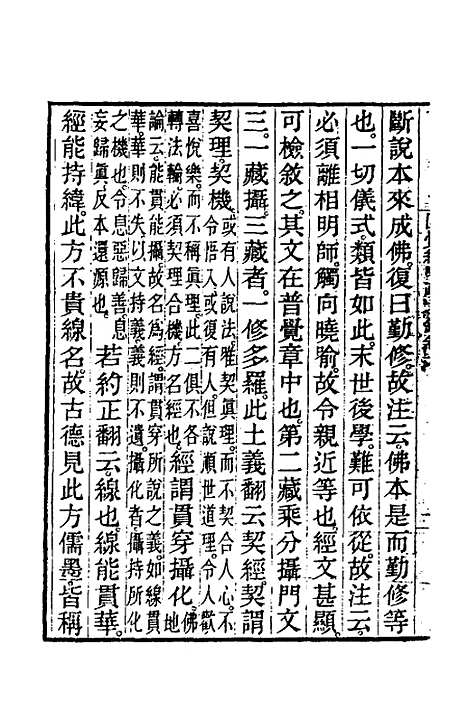 斷說本來成佛。復曰勤修。故注云。佛本是而勤修等
也。一切儀式。類皆如此。末世後學。難可依從。故注云。
必須離相明師。觸向曉喻。故令親近等也。經文甚顯。
可檢敘之。其文在普覺章中也。第二藏乘分攝門文
三。一藏攝。三藏者。一修多羅。此土義翻云契經。契謂
契理。契機。
或有人說法。雖契眞理。而不契合人心。不
令悟入。或復有人。但說順世道理。令人歡
喜悅樂。而不稱眞理。此二俱不各
轉法輪。必須契理合機。方名經也。
經謂貫穿攝化。
佛
地
論云。能貫能攝。故名爲經。謂貫穿所說之義。如線貫
華。華則不失。以文持義。義則不遺。攝化者。攝持所化
之機也。令息惡歸善。息
妄歸眞。反本還源也。
若約正翻云線也。線能貫華。
經能持緯。此方不貴線名。故古德見此方儒墨。皆稱